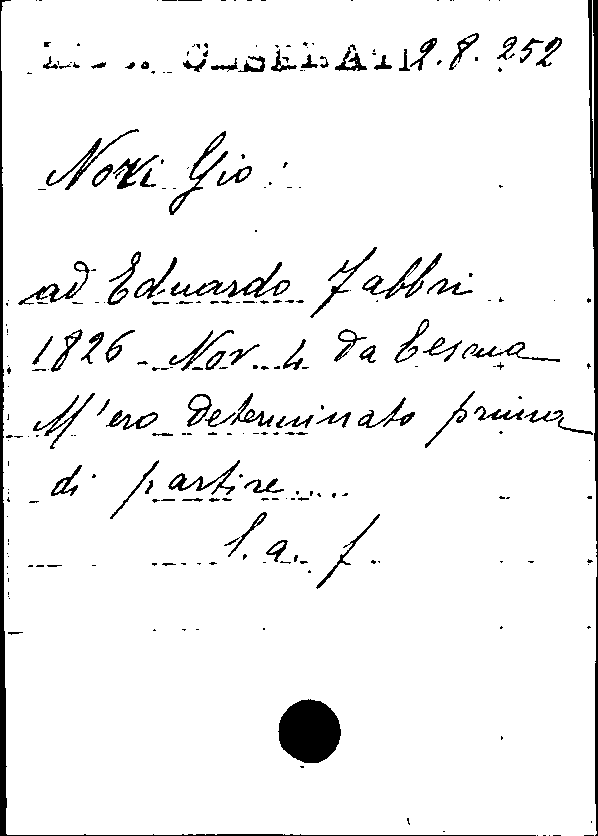 2.8.252
Nozi Gio:
ad Eduardo Fabbri
1826 - Nov. 4 da Cesena
M'ero determinato prima
di partire....
l. a. f.